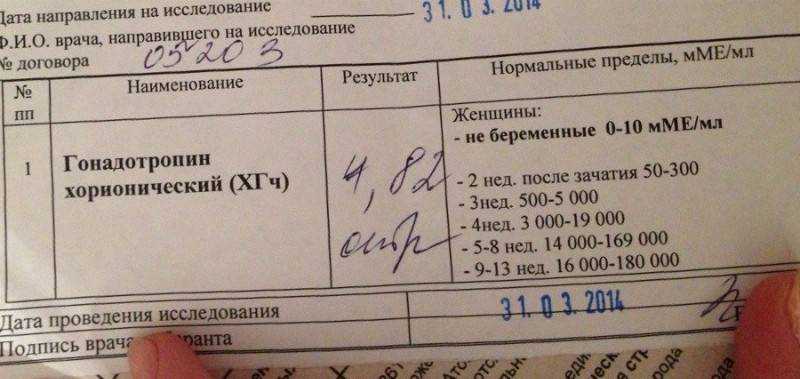 Дата направления на исследование 31. 03. 2014
Ф.И.О. врача, направившего на исследование
№ договора 05203
№ пп
Наименование
Результат
Нормальные пределы, мМЕ/мл
1
Гонадотропин
хорионический (ХГч)
4,82
отр
Женщины:
- не беременные 0-10 мМЕ/мл
- 2 нед. после зачатия 50-300
- 3нед. 500-5 000
- 4нед. 3 000-19 000
- 5-8 нед. 14 000-169 000
- 9-13 нед. 16 000-180 000
Дата проведения исследования 31. 03. 2014
Подпись врача